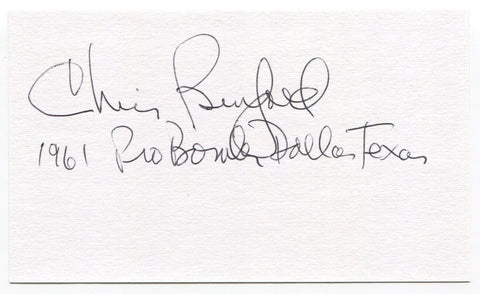 Chris Burford
1961 Pro Bowler, Dallas Texans